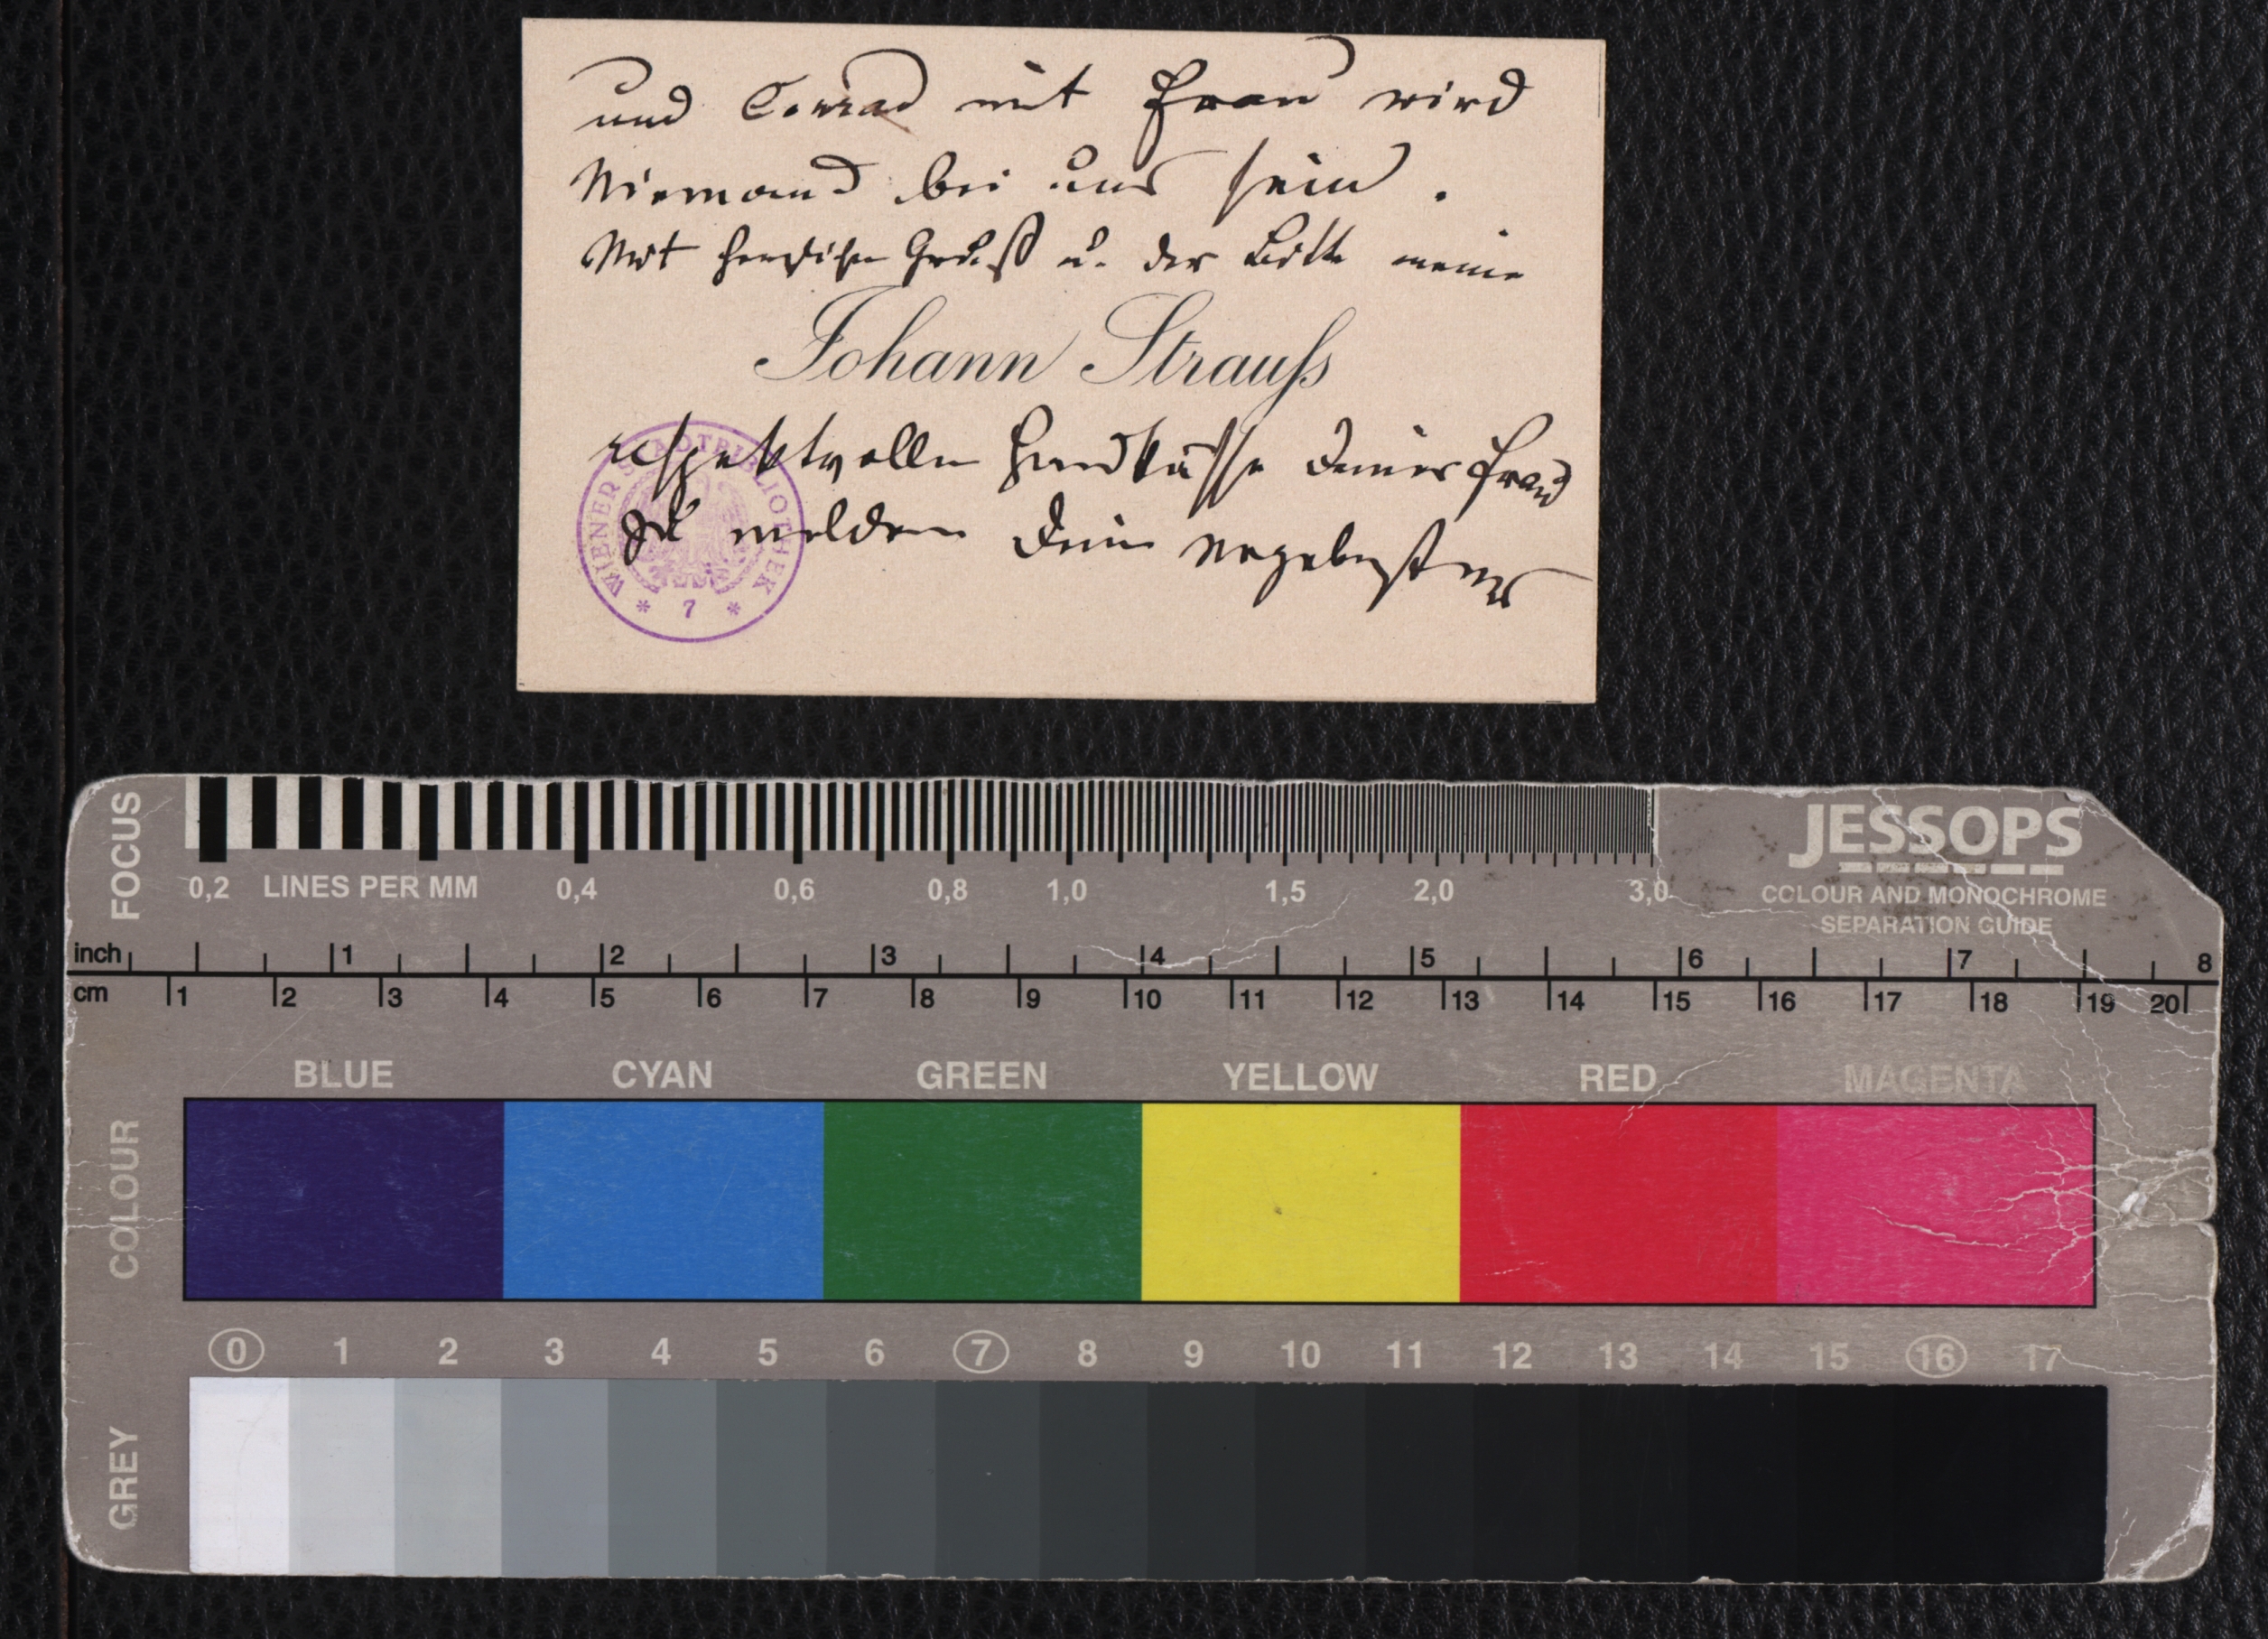 und Conrad mit Frau wird
Niemand bei uns sein.
Mit herzlichen Gruß u. der Bitte meine
Johann Strauß
respektvollen Handküsse Deiner Frau
zu melden Dein ergebenster
WIENER STADTBIBLIOTHEK
* 7 *
FOCUS
JESSOPS
0,2 LINES PER MM 0,4 0,6 0,8 1,0 1,5 2,0 3,0
COLOUR AND MONOCHROME
SEPARATION GUIDE
inch 1 2 3 4 5 6 7 8
cm 1 2 3 4 5 6 7 8 9 10 11 12 13 14 15 16 17 18 19 20
BLUE CYAN GREEN YELLOW RED MAGENTA
COLOUR
0 1 2 3 4 5 6 7 8 9 10 11 12 13 14 15 16 17
GREY